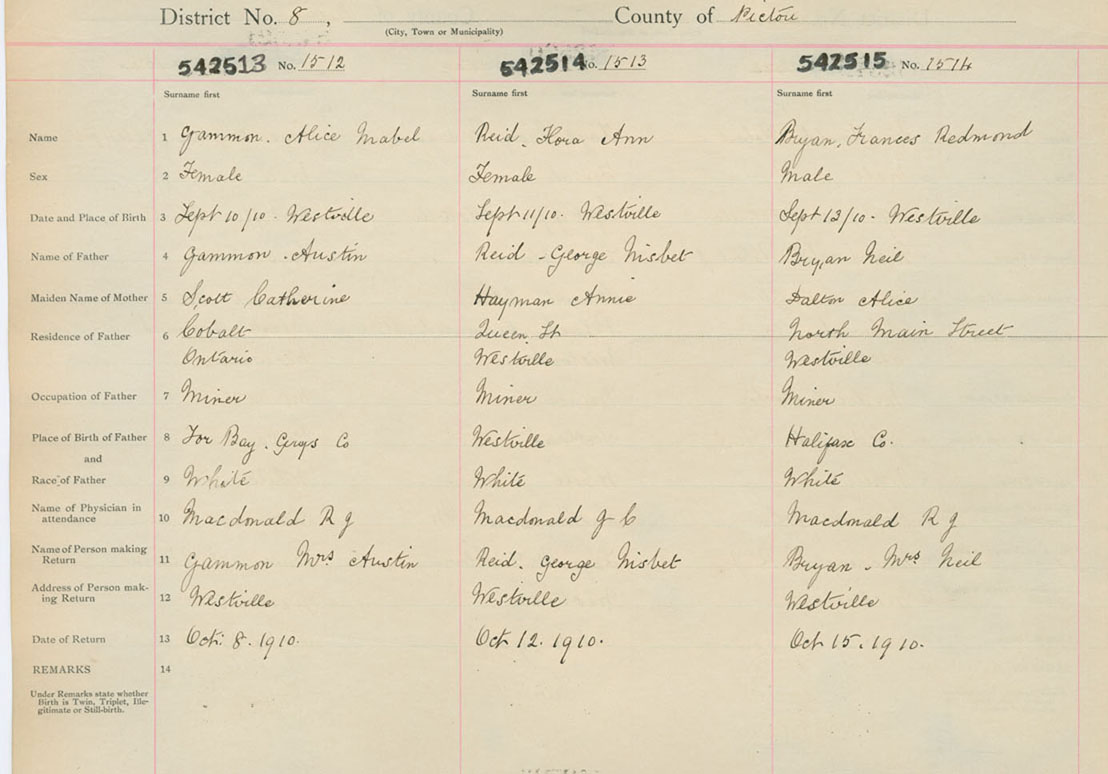 District No. 8, County of Pictou
(City, Town or Municipality)
542513 No. 1512 542514 No. 1513 542515 No. 1514
Surname first Surname first Surname first
Name 1 Gammon. Alice Mabel Reid. Flora Ann Bryan, Frances Redmond
Sex 2 Female Female Male
Date and Place of Birth 3 Sept 10/10 - Westville Sept 11/10. Westville Sept 13/10 - Westville
Name of Father 4 Gammon . Austin Reid - George Nisbet Bryan Neil
Maiden Name of Mother 5 Scott Catherine Hayman Annie Dalton Alice
Residence of Father 6 Cobalt Queen St North Main Street
Ontario Westville Westville
Occupation of Father 7 Miner Miner Miner
Place of Birth of Father 8 Tor Bay. Guys Co Westville Halifax Co.
and
Race of Father 9 White White White
Name of Physician in
attendance 10 Macdonald R J Macdonald J C Macdonald R J
Name of Person making
Return 11 Gammon Mrs Austin Reid. George Nisbet Bryan - Mrs Neil
Address of Person mak-
ing Return 12 Westville Westville Westville
Date of Return 13 Oct. 8. 1910. Oct 12. 1910. Oct 15. 1910.
REMARKS 14
Under Remarks state whether
Birth is Twin, Triplet, Ille-
gitimate or Still-birth.